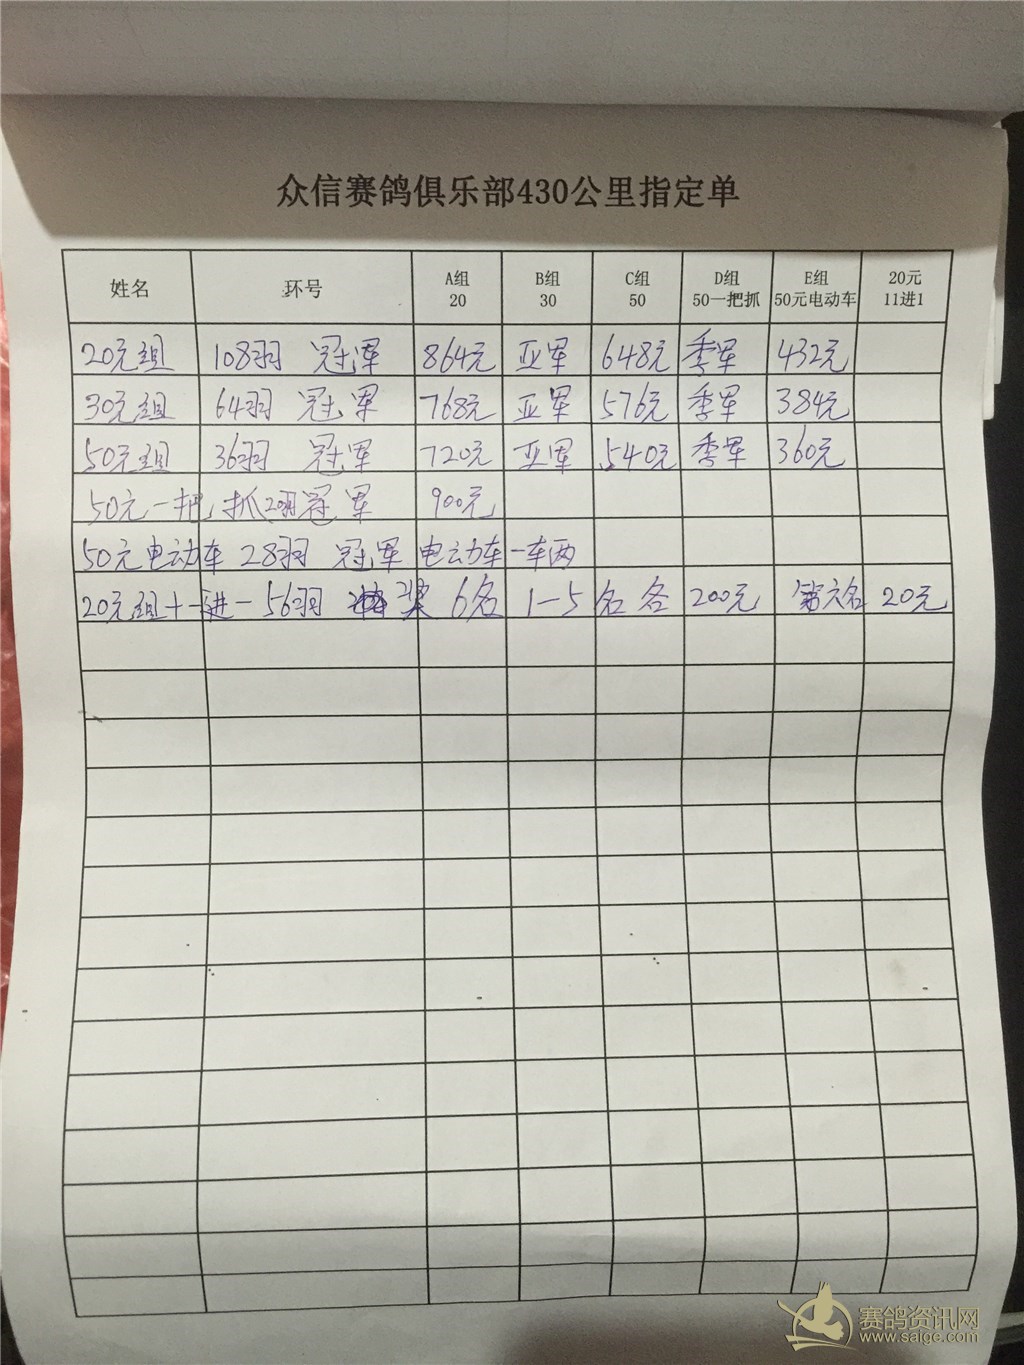 众信赛鸽俱乐部430公里指定单
姓名 环号 A组 B组 C组 D组 E组 20元
20 30 50 50一把抓 50元电动车 11进1
20元组 108羽 冠军 864元 亚军 648元 季军 432元
30元组 64羽 冠军 768元 亚军 576元 季军 384元
50元组 36羽 冠军 720元 亚军 540元 季军 360元
50元一把抓20羽冠军 900元
50元电动车 28羽 冠军 电动车一车两
20元组十一进一 56羽 奖 6名 1-5名各 200元 第六名 20元
赛鸽资讯网
www.saige.com